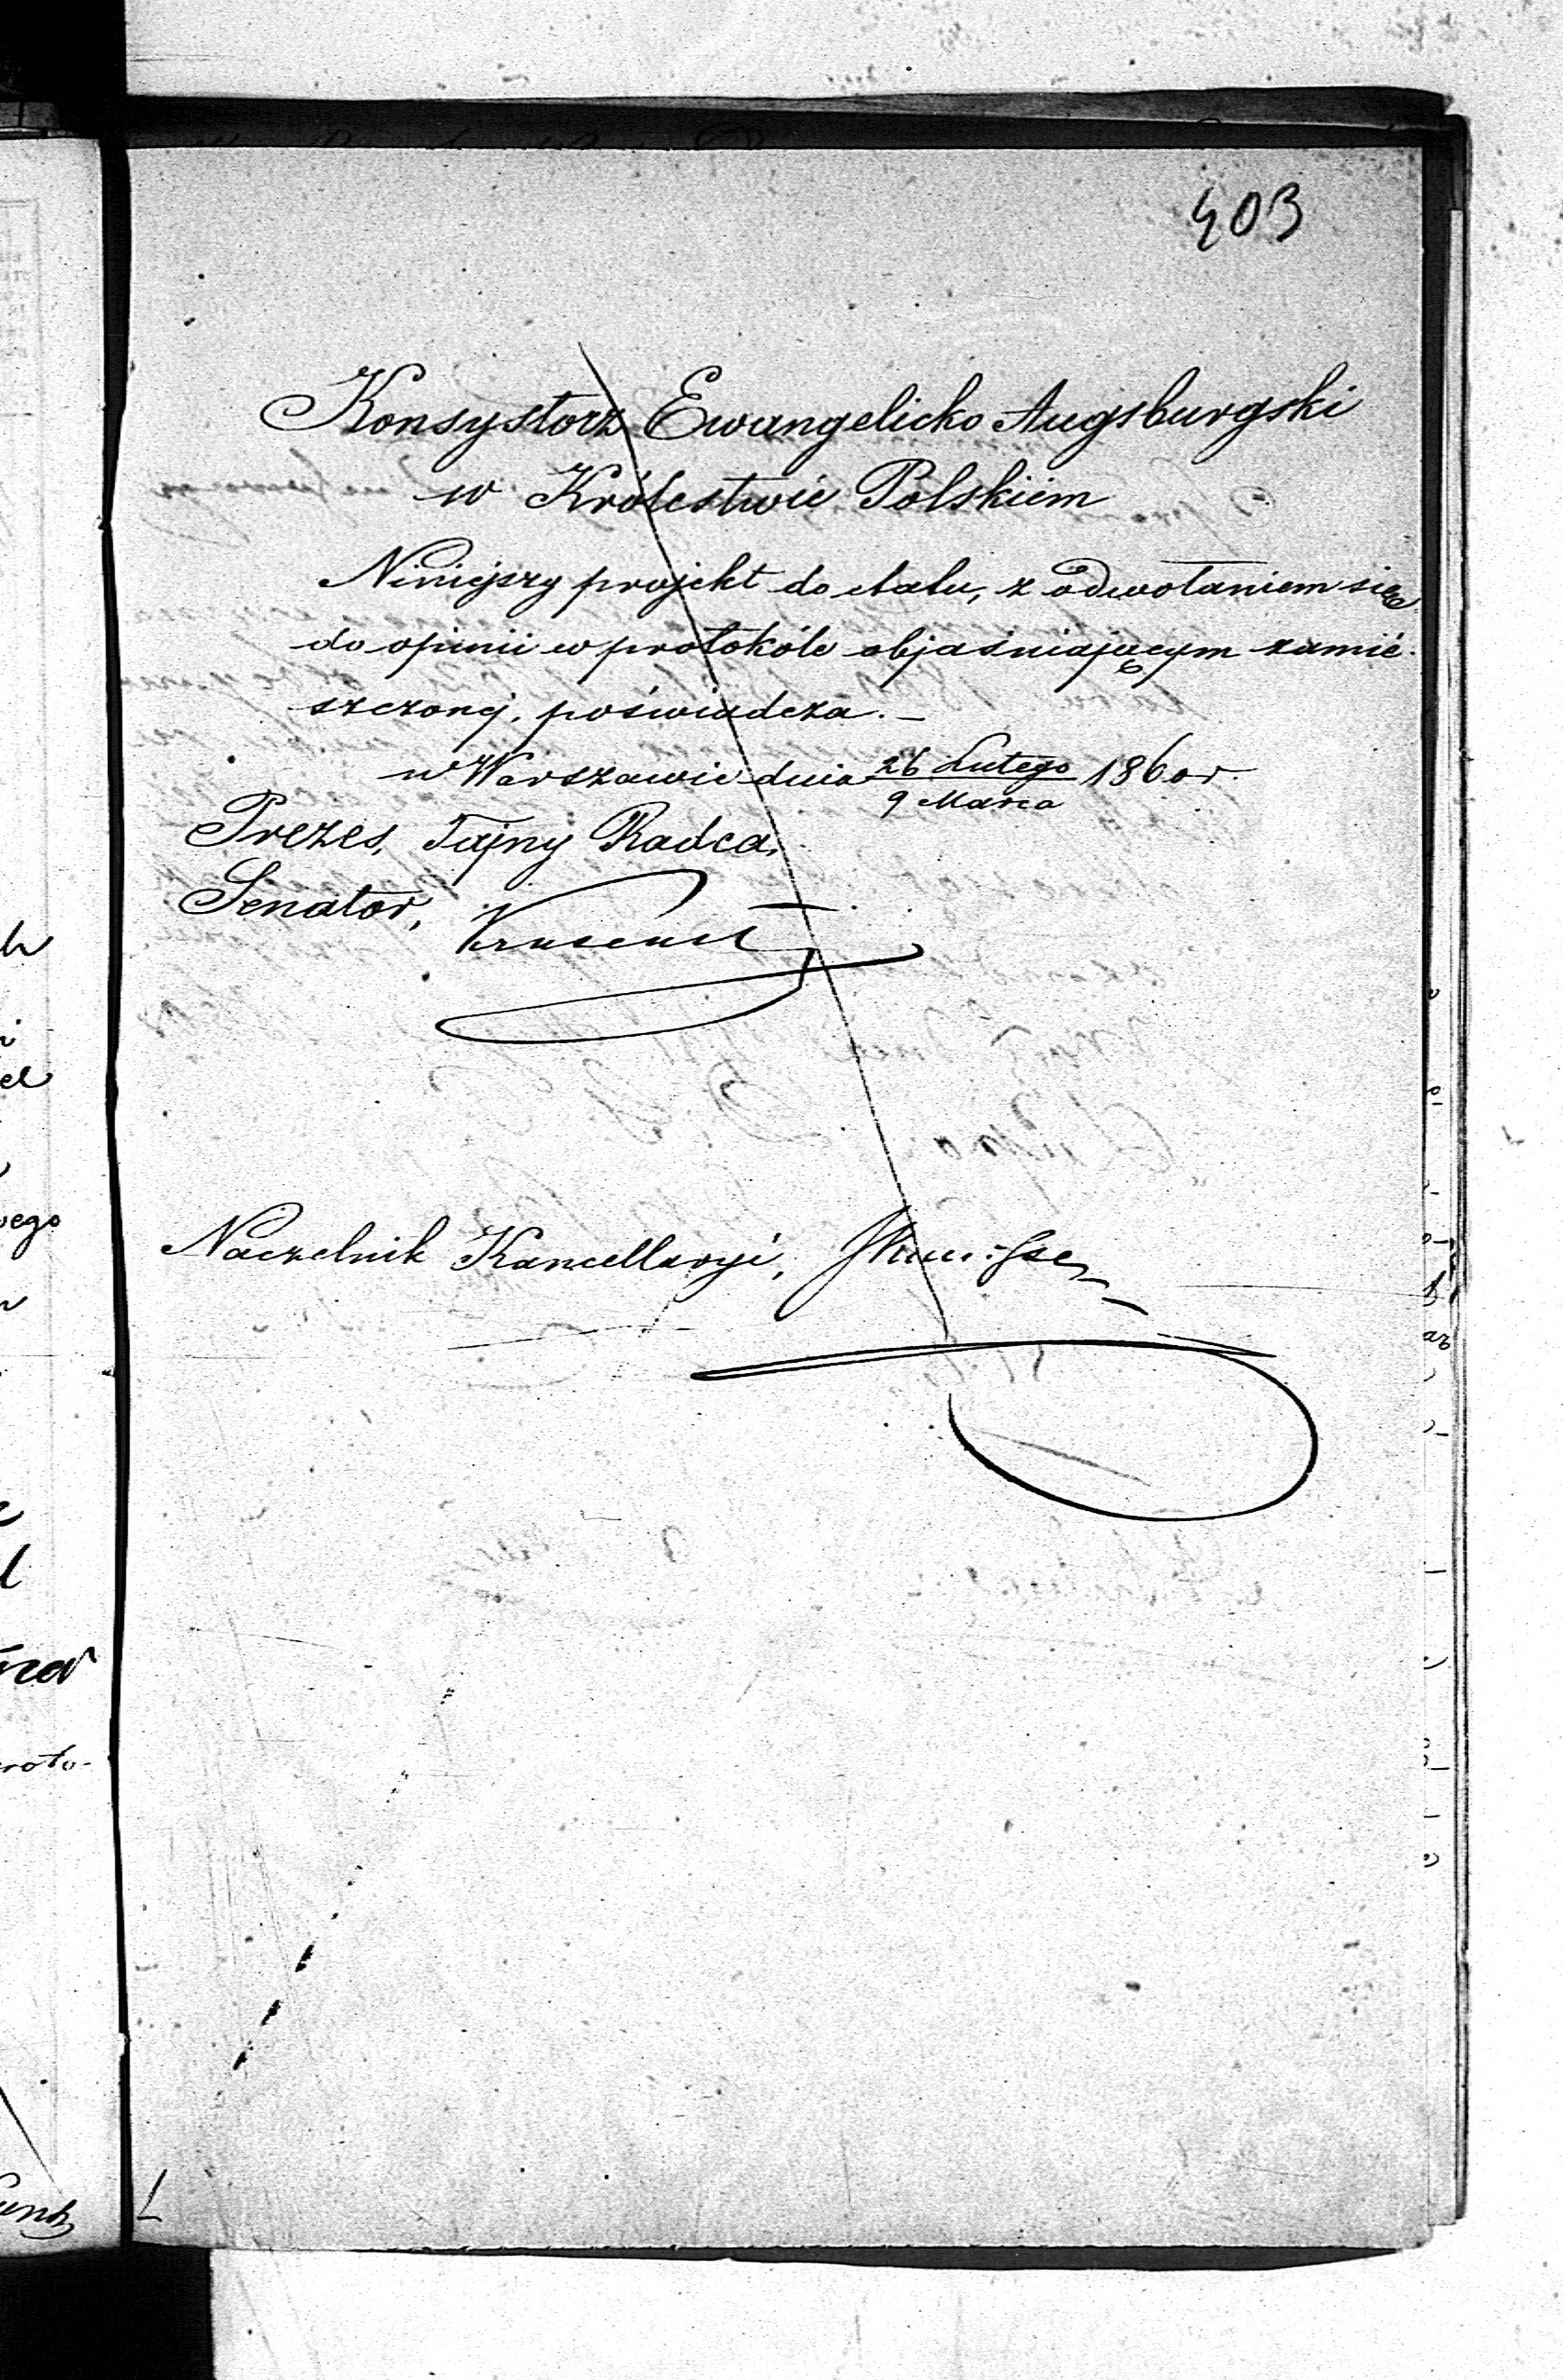 403
Konsystorz Ewangelicko Augsburgski
w Królestwie Polskiém
Niniejszy projekt do etatu, z odwołaniem się
do opinii w protokóle objaśniającym zamié-
szczonej, poświadcza. –
w Warszawie dnia 26 Lutego 1860 r.
9 Marca
Prezes, Tajny Radca,
Senator,
Naczelnik Kancellaryi,